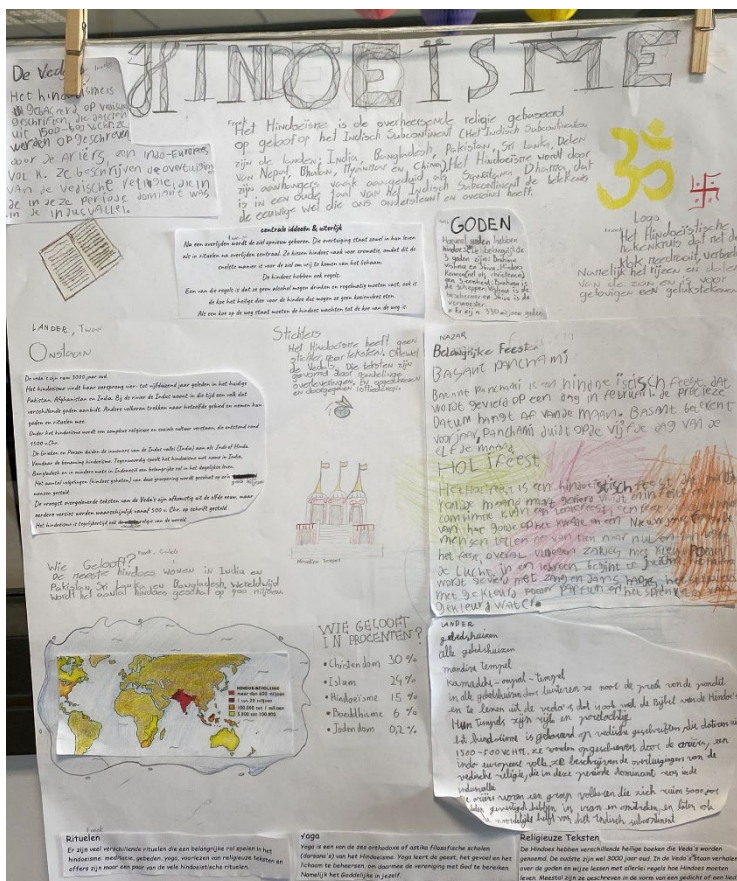 HINDOEÏSME
De Veda
Het hindoeïsme is
gebaseerd op vedische
geschriften, die dateren
uit 1500-600 v.Chr. ze
werden opgeschreven
door de Ariërs, een Indo-Europees
volk. Ze beschrijven de overtuiging
van de vedische religie, die in
de in deze periode dominant was
in de indusvallei.
Het Hindoeïsme is de overheersende religie gebaseerd
op geloof op het Indisch Subcontinent (Het Indisch Subcontinenten
zijn de landen; India, Bangladesh, Pakistan, Sri Lanka, Delen
van Nepal, Bhutan, Myanmar en China) Het Hindoeïsme wordt door
zijn aanhangers vaak aangeduid als Sanatana Dharma, dat
is in een oude taal van het Indisch Subcontinent de betekenis
de eeuwige wet die ons ondersteunt en overeind heeft.
ॐ
卐
Logo
Het Hindoeïstische
hakenkruis dat net de
klok meedraait,
Namelijk het rijzen en dalen
van de zon en is voor
gelovigen een gelukteken
centrale ideeën & uiterlijk
Na een overlijden wordt de ziel opnieuw geboren. Die overtuiging staat zowel in hun leven
als in rituelen na overlijden centraal. Ze kiezen hiervoor vaak voor crematie, omdat dit de
snelste manier is voor de ziel om vrij te komen van het lichaam.
De hindoes hebben ook regels.
Een van de regels is dat ze geen alcohol mogen drinken en regelmatig moeten vast, ook is
de koe het heilige dier voor de hindoe dus mogen ze geen koeienvlees eten.
Als een koe op de weg staat moeten de hindoes wachten tot de koe van de weg is.
GODEN
Hoeveel goden hebben
hindoes? De belangrijkste
3 goden zijn: Brahma
Vishnu en Shiva. Hindoes
de schepper, Vishnu is de
beschermer en Shiva is de
verwoester.
• Er zijn 330 miljoen goden
LANDER, Twan
Onstaan
De veda's zijn ruim 3000 jaar oud.
Het hindoeïsme vindt haar oorsprong vier- tot vijfduizend jaar geleden in het huidige
Pakistan, Afghanistan en India. Bij de rivier de Indus woont in die tijd een volk dat
verschillende goden aanbidt. Andere volkeren trekken naar hetzelfde gebied en nemen hun
goden en rituelen mee.
Onder het hindoeïsme wordt een complexe religieuze en sociale cultuur verstaan, die ontstond rond
1500 v.Chr.
De Grieken en Perzen duiden de inwoners van de Indus vallei (India) aan als Indo of Hindu.
Vandaar de benaming hindoeïsme. Tegenwoordig speelt het hindoeïsme met name in India,
Bangladesh en in mindere mate in Indonesië een belangrijke rol in het dagelijkse leven.
Het aantal volgelingen (hindoes geheten) van deze groepering wordt geschat op zo'n
mensen gesteld.
De vroegst overgeleverde teksten van de Veda's zijn afkomstig uit de elfde eeuw, maar
eerdere versies worden waarschijnlijk vanaf 500 v. Chr. op schrift gesteld.
Het hindoeïsme is tegelijkertijd ook de religie van de wereld.
Stichters
Het Hindoeïsme heeft geen
stichter, maar teksten. Oftewel
de Vedas. Die teksten zijn
gevormd door mondelinge
overleveringen, en opgeschreven
en doorgegeven
Hindoe Tempel
NAZAR
Belangrijke Feesten
BASANT PANCHAMI
Basant Panchami is een hindoeïstisch feest, dat
wordt gevierd op een dag in februari. De precieze
datum hangt af van de maan. Basant betekent
voorjaar, Panchami duidt op de vijfde dag van de
elfde maand
HOLI FEEST
Het Holi Feest is een hindoeïstisch feest
mensen
het feest, overal
de lucht in en iedereen
wordt gevierd met zang en dans,
met gekleurd poeder parfum en het sprenkelen van
gekleurd water.
Wie Gelooft?
De meeste hindoes wonen in India en
Pakistan, Sri Lanka en Bangladesh. Wereldwijd
wordt het aantal hindoes geschat op 900 miljoen
HINDOE-BEVOLKING
meer dan 400 miljoen
100.000 tot 1 miljoen
WIE GELOOFT
IN PROCENTEN?
• Christendom 30 %
• Islam 24 %
• Hindoeïsme 15 %
• Boeddhisme 6 %
• Jodendom 0,2 %
LANDER
gebedshuizen
alle gebedshuizen
mandire tempel
in alle gebedshuizen dan luisteren ze naar de preek van de pandit
en ze lezen uit de veda's dat is ook wel de Bijbel van de Hindoe's
Hun Tempels zijn vrolijk en prachtig
het hindoeïsme is gebaseerd op vedische geschriften, die dateren uit
1500-500 v CHR. ze worden opgeschreven door de ariërs, een
indo europees volk, ze beschrijven de overtuigingen van de
vedische religie, die in deze periode dominant was in de
indusvallei
een groep volkeren die zich ruim 5000 jaar
Rituelen
Er zijn veel verschillende rituelen die een belangrijke rol spelen in het
hindoeïsme: meditatie, gebeden, yoga, voorlezen van religieuze teksten en
offeren zijn maar een paar van de vele hindoeïstische rituelen.
Yoga
Yoga is een van de zes orthodoxe of astika filosofische scholen
(darsana's) van het Hindoeïsme. Yoga leert de geest, het gevoel en het
lichaam te beheersen, om daarmee de vereniging met God te bereiken
Namelijk het Goddelijke in jezelf.
Religieuze Teksten
De Hindoes hebben verschillende heilige boeken die Veda's worden
genoemd. De oudste zijn wel 3000 jaar oud. In de Veda's staan verhalen
over de goden en wijze lessen met allerlei regels hoe Hindoes moeten
leven. Meestal zijn ze geschreven in de vorm van een gedicht of een lied